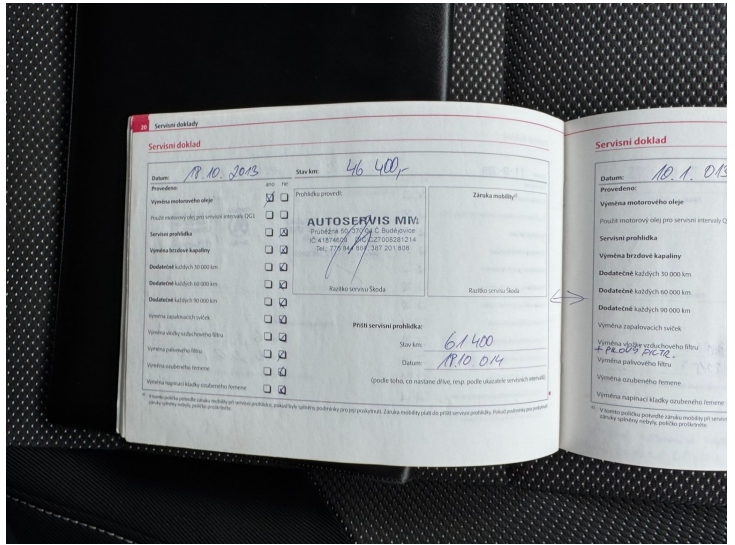 20 Servisní doklady
Servisní doklad
Datum: 18.10.2013 Stav km: 46 400,-
Provedeno: ano ne
Výměna motorového oleje
Použit motorový olej pro servisní intervaly QG1
Servisní prohlídka
Výměna brzdové kapaliny
Dodatečně každých 30 000 km
Dodatečně každých 60 000 km
Dodatečně každých 90 000 km
Výměna zapalovacích svíček
Výměna vložky vzduchového filtru
Výměna palivového filtru
Výměna ozubeného řemene
Výměna napínací kladky ozubeného řemene
Prohlídku provedl:
AUTOSERVIS MM
Průběžná 50, 370 04 Č. Budějovice
IČ:41874609 DIČ:CZ7008281214
Tel.: 775 844 854, 387 201 808
Razítko servisu Škoda
Záruka mobility
Razítko servisu Škoda
Příští servisní prohlídka:
Stav km: 61 400
Datum: 18.10.014
(podle toho, co nastane dříve, resp. podle ukazatele servisních intervalů)
V tomto políčku potvrďte záruku mobility při servisní prohlídce, pokud byly splněny podmínky pro její poskytnutí. Záruka mobility platí do příští servisní prohlídky. Pokud podmínky pro poskytnutí
záruky splněny nebyly, políčko proškrtněte.
Servisní doklad
Datum: 10.1.013
Provedeno:
Výměna motorového oleje
Použit motorový olej pro servisní intervaly Q
Servisní prohlídka
Výměna brzdové kapaliny
Dodatečně každých 30 000 km
Dodatečně každých 60 000 km
Dodatečně každých 90 000 km
Výměna zapalovacích svíček
Výměna vložky vzduchového filtru
+ PYLOVÝ FILTR.
Výměna palivového filtru
Výměna ozubeného řemene
Výměna napínací kladky ozubeného řemene
V tomto políčku potvrďte záruku mobility při servisní
záruky splněny nebyly, políčko proškrtněte.